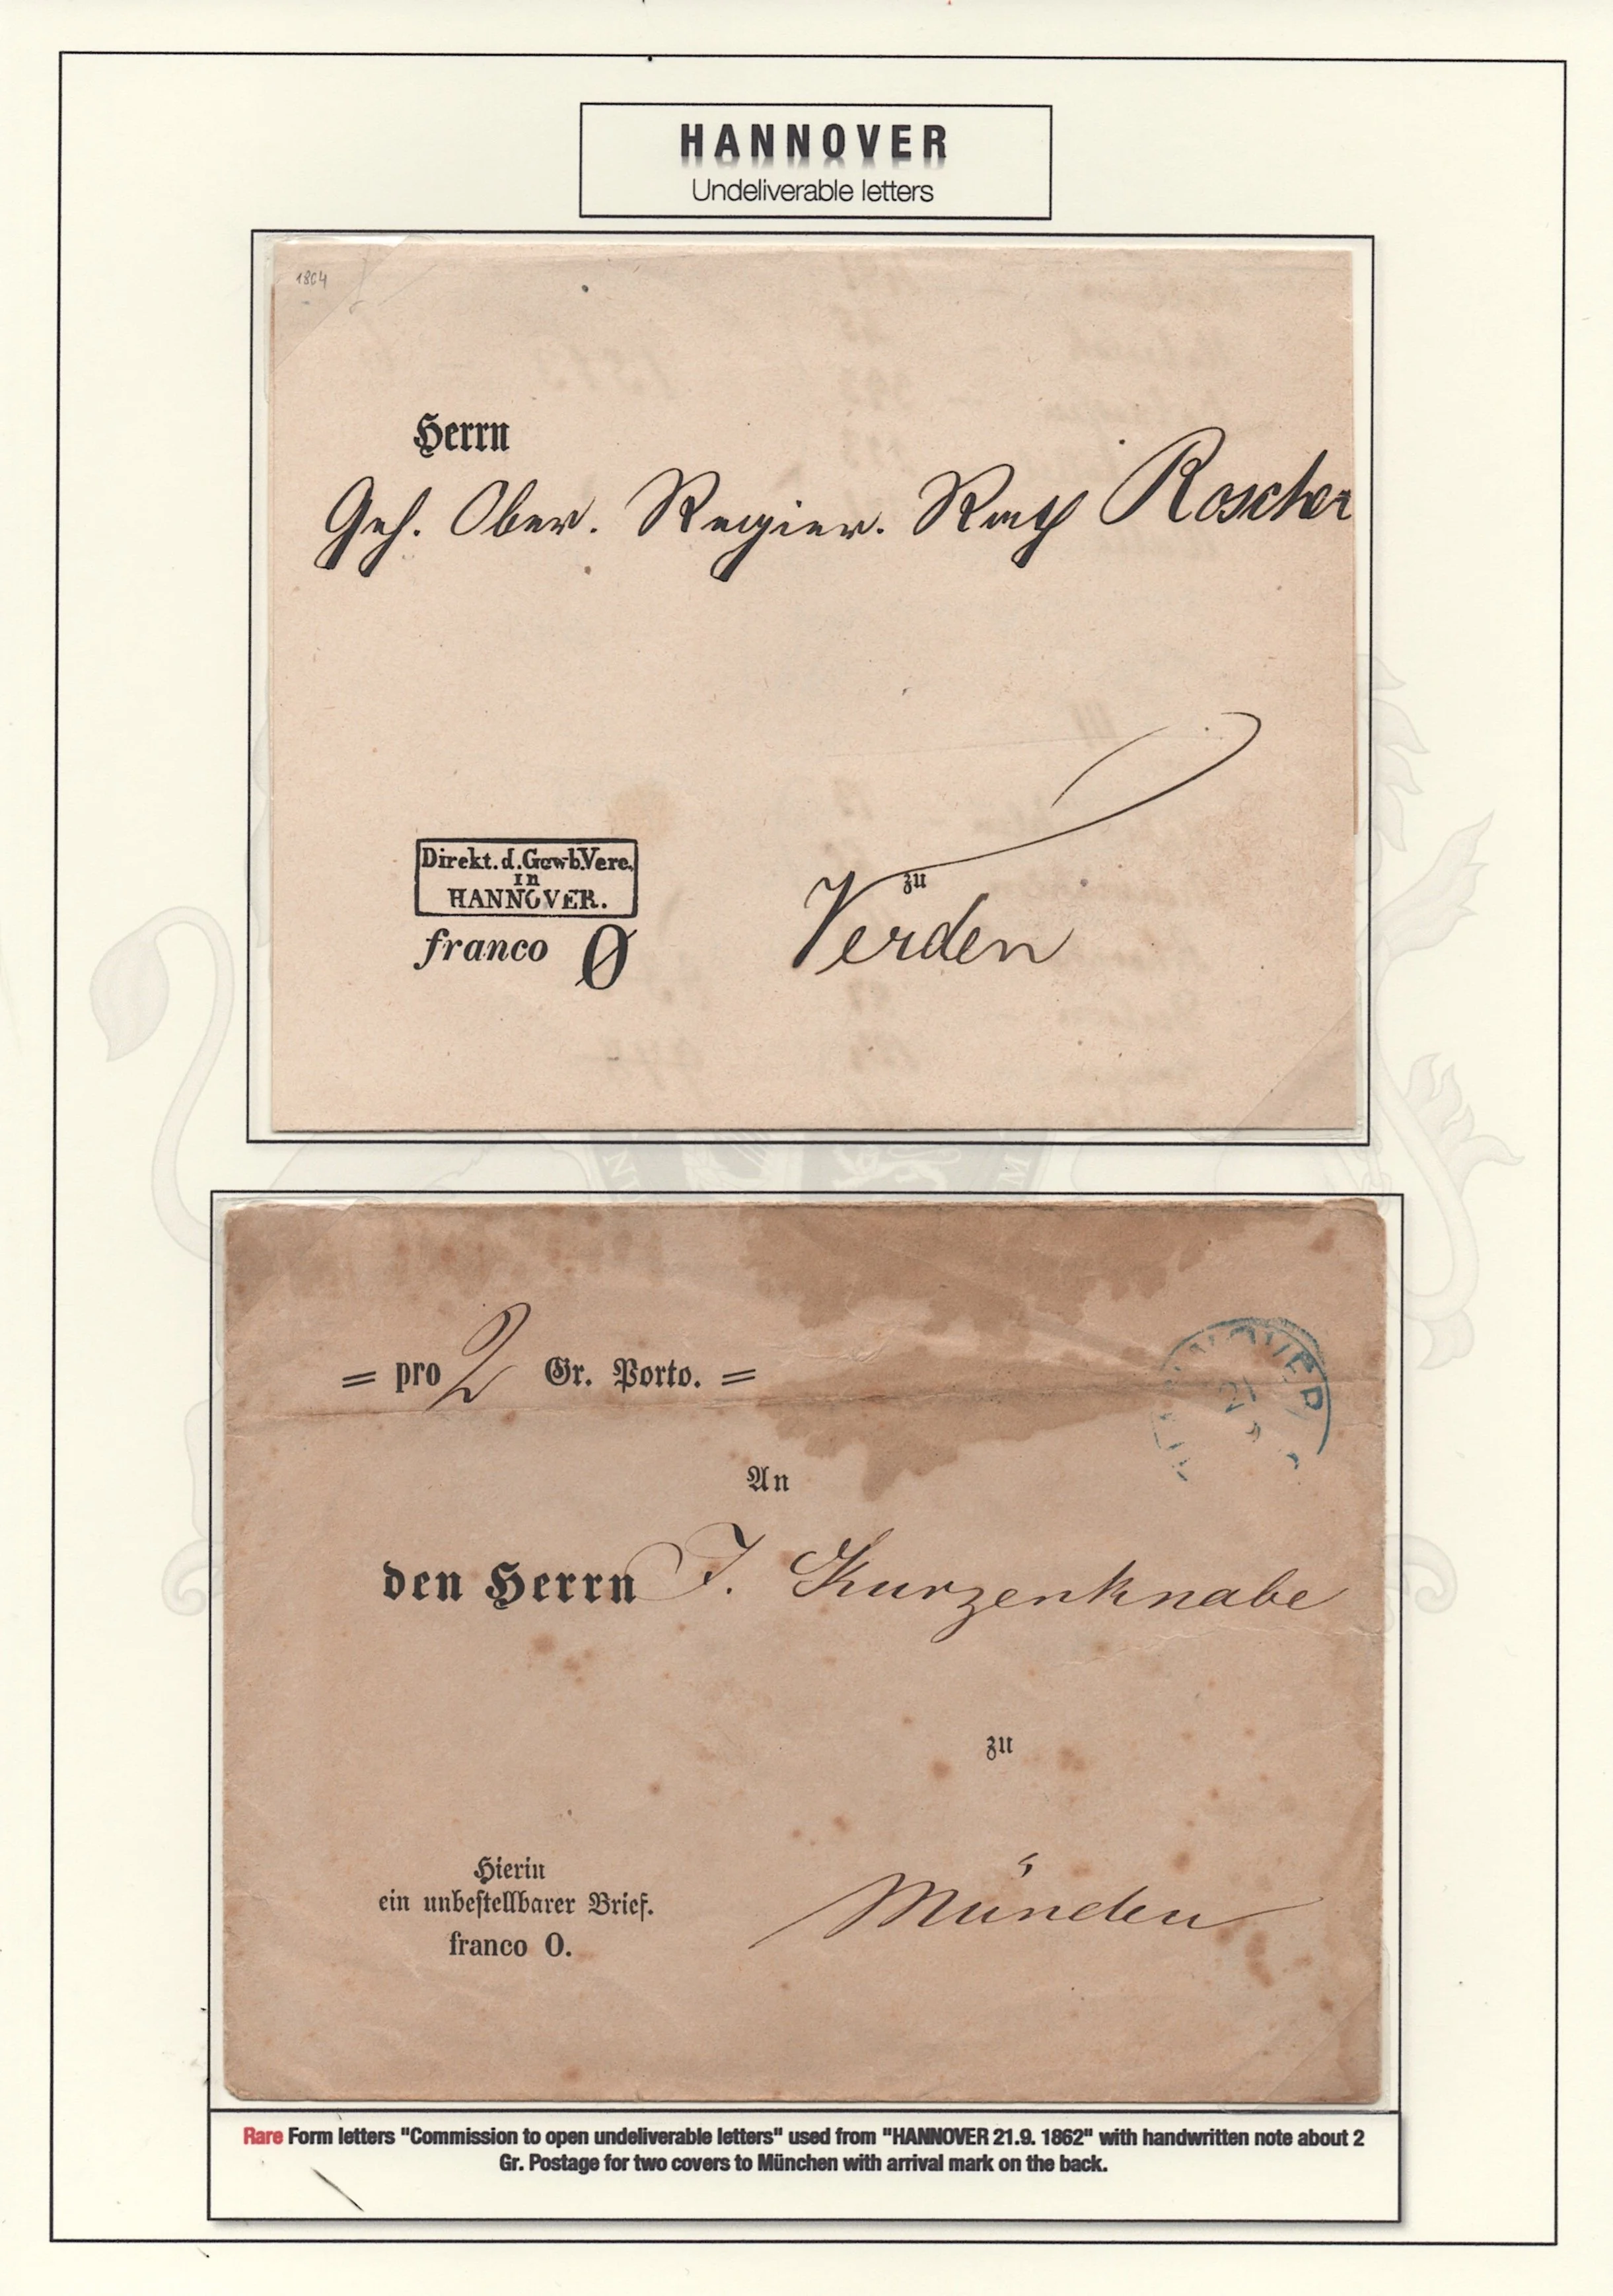 HANNOVER
Undeliverable letters
1864
Herrn
Geh. Ober. Regier. Rath Roscher
Direkt. d. Gewb. Vere.
in
HANNOVER.
franco 0
zu
Verden
= pro 2 Gr. Porto. =
HANNOVER
21
9
An
den Herrn J. Kurzenknabe
zu
Hierin
ein unbestellbarer Brief.
franco 0.
Münden
Rare Form letters "Commission to open undeliverable letters" used from "HANNOVER 21.9. 1862" with handwritten note about 2
Gr. Postage for two covers to München with arrival mark on the back.